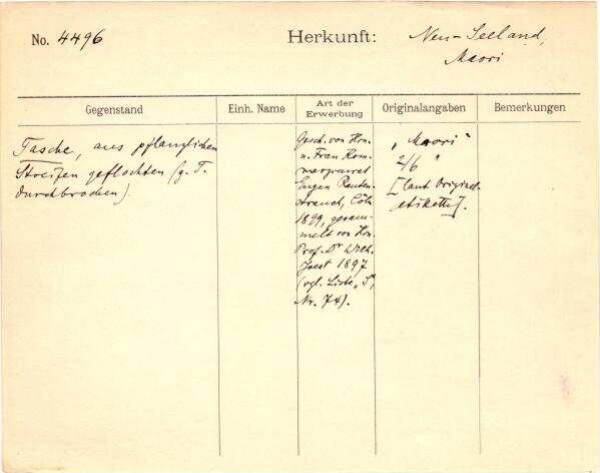 No. 4496
Herkunft: Neu-Seeland,
Maori
Gegenstand
Einh. Name
Art der
Erwerbung
Originalangaben
Bemerkungen
Tasche, aus pflanzlichen
Streifen geflochten (z. T.
durchbrochen)
Gesch. von Hrn.
u. Frau Kom-
merzienrat
Eugen Rauten-
strauch, Cöln
1899, gesam-
melt von Hrn.
Prof. Dr Wilh.
Joest 1897
(vgl. Liste „J",
Nr. 74).
„Maori"
2/6 "
[laut Original-
etikette].